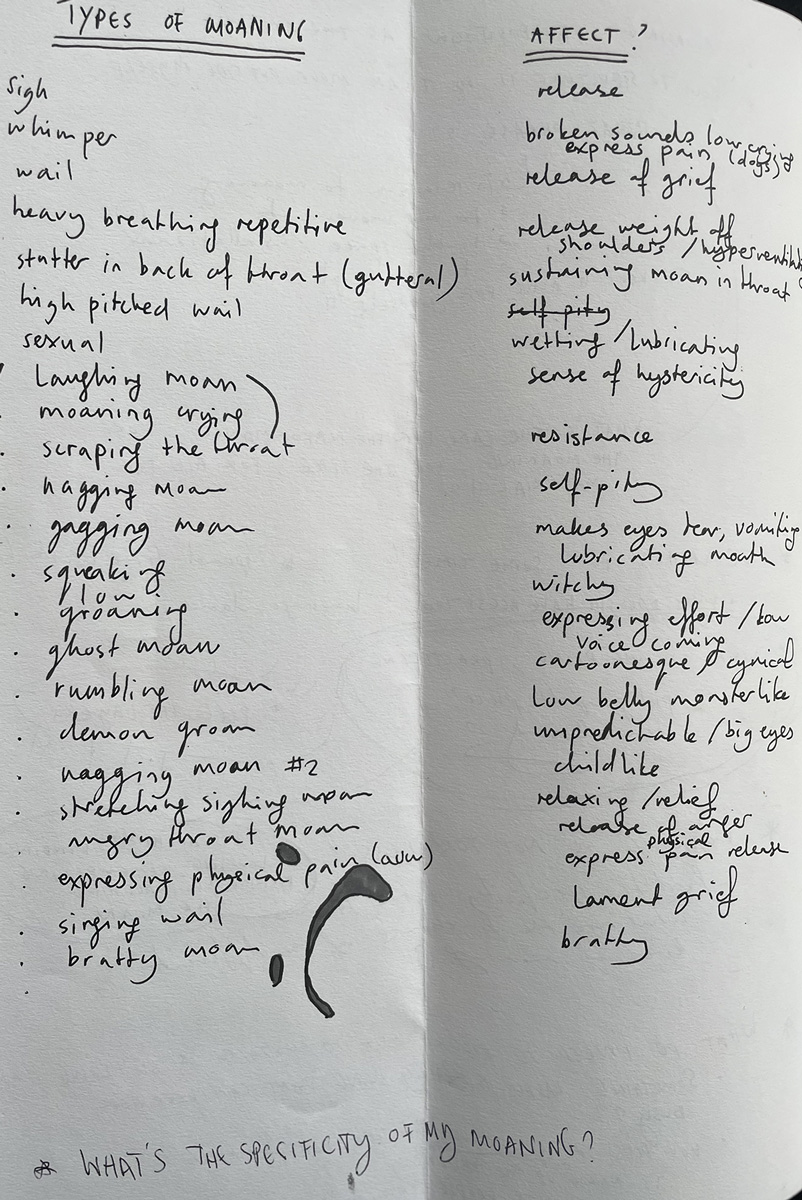 TYPES OF MOANING
sigh
whimper
wail
heavy breathing repetitive
stutter in back of throat (gutteral)
high pitched wail
sexual
Laughing moan
moaning crying
scraping the throat
nagging moan
gagging moan
squeaking
low
groaning
ghost moan
rumbling moan
demon groan
nagging moan #2
stretching sighing moan
angry throat moan
expressing physical pain (auw)
singing wail
bratty moan
AFFECT?
release
broken sounds low crying
express pain (dogs)
release of grief
release weight off
shoulders /hyperventil
sustaining moan in throat
self pity
wetting /lubricating
sense of hystericity
resistance
self-pity
makes eyes tear, vomiting
lubricating mouth
witchy
expressing effort /low
voice coming
cartoonesque / cynical
Low belly monsterlike
unpredictable /big eyes
childlike
relaxing /relief
release of anger
physical
express pain release
Lament grief
bratty
* WHAT'S THE SPESIFICITY OF MY MOANING?